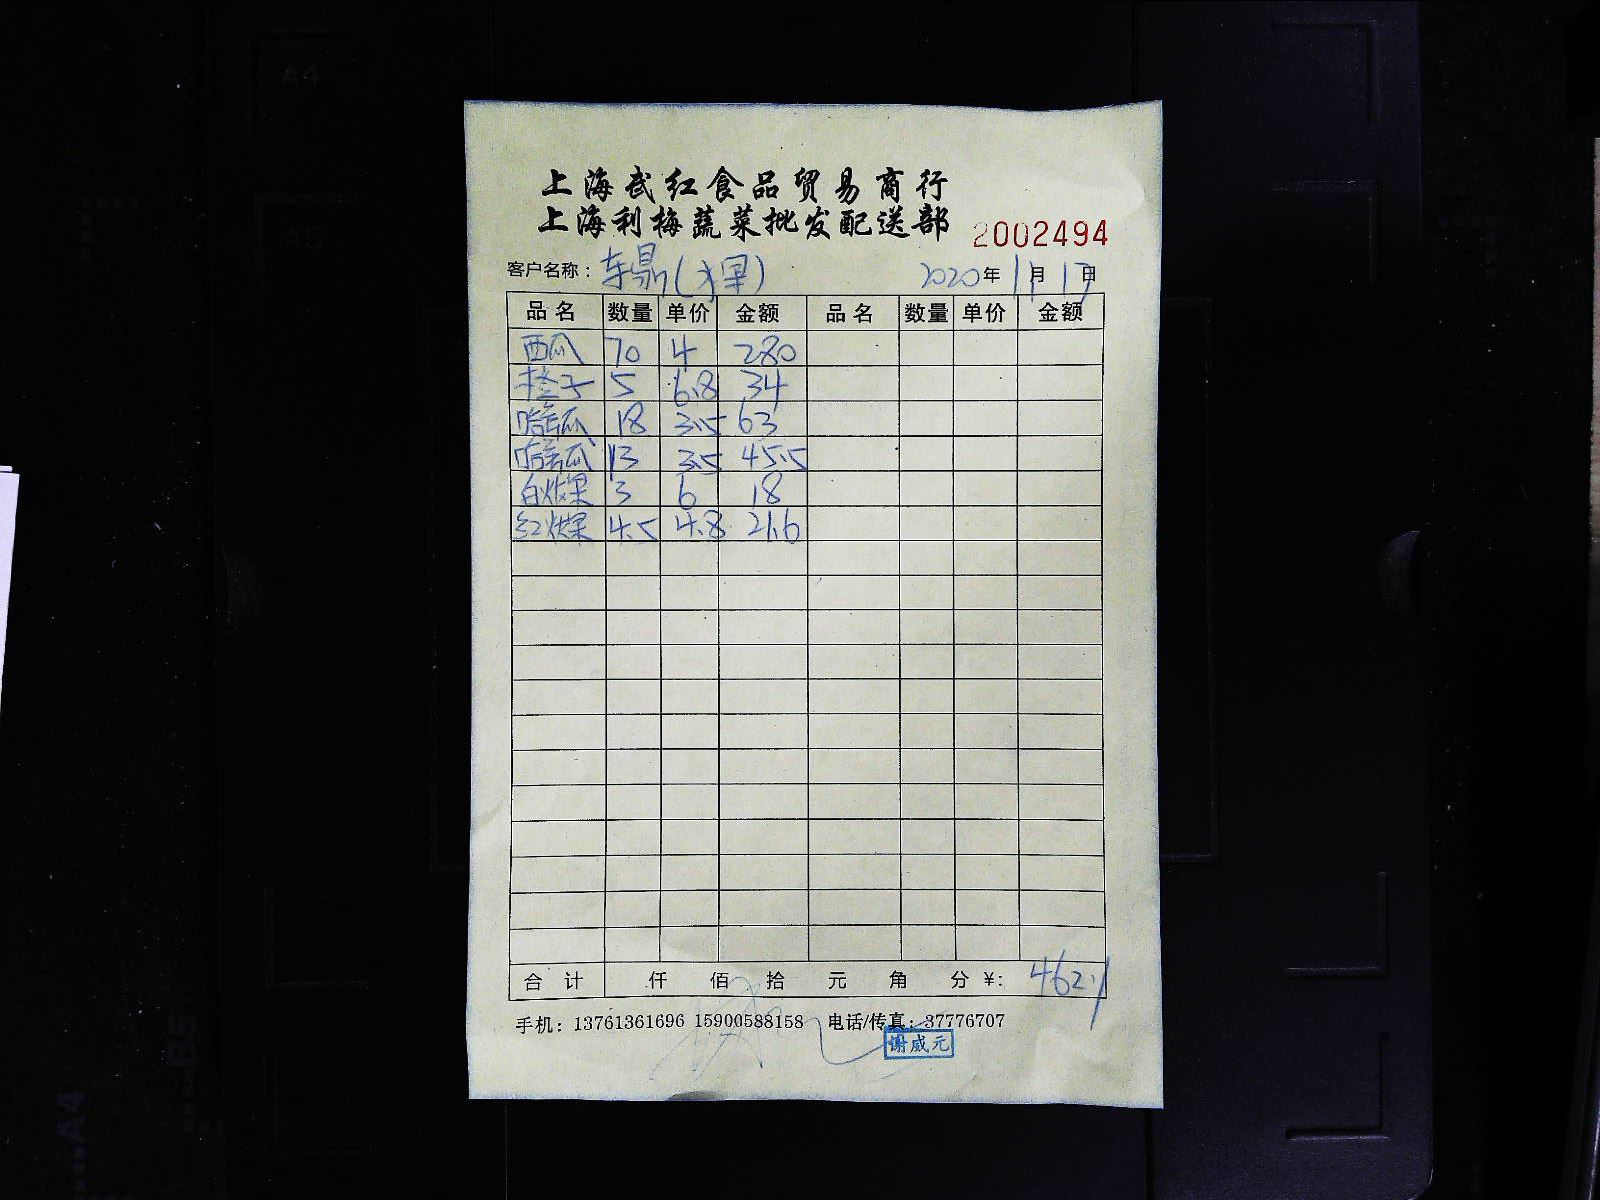 上海武红食品贸易商行
上海利梅蔬菜批发配送部 2002494
客户名称：东鼎(水果) 2020年1月17日
品名 数量 单价 金额 品名 数量 单价 金额
西瓜 70 4 280
橙子 5 6.8 34
哈密瓜 18 3.5 63
哈密瓜 13 3.5 45.5
白火龙果 3 6 18
红火龙果 4.5 4.8 21.6
合计 仟 佰 拾 元 角 分 ¥: 462.1
手机：13761361696 15900588158 电话/传真：37776707
谢威元
A4
A5
B5
A4